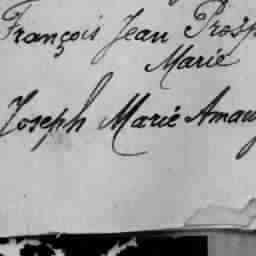 François Jean Prosp
Marie
Joseph Marie Amau